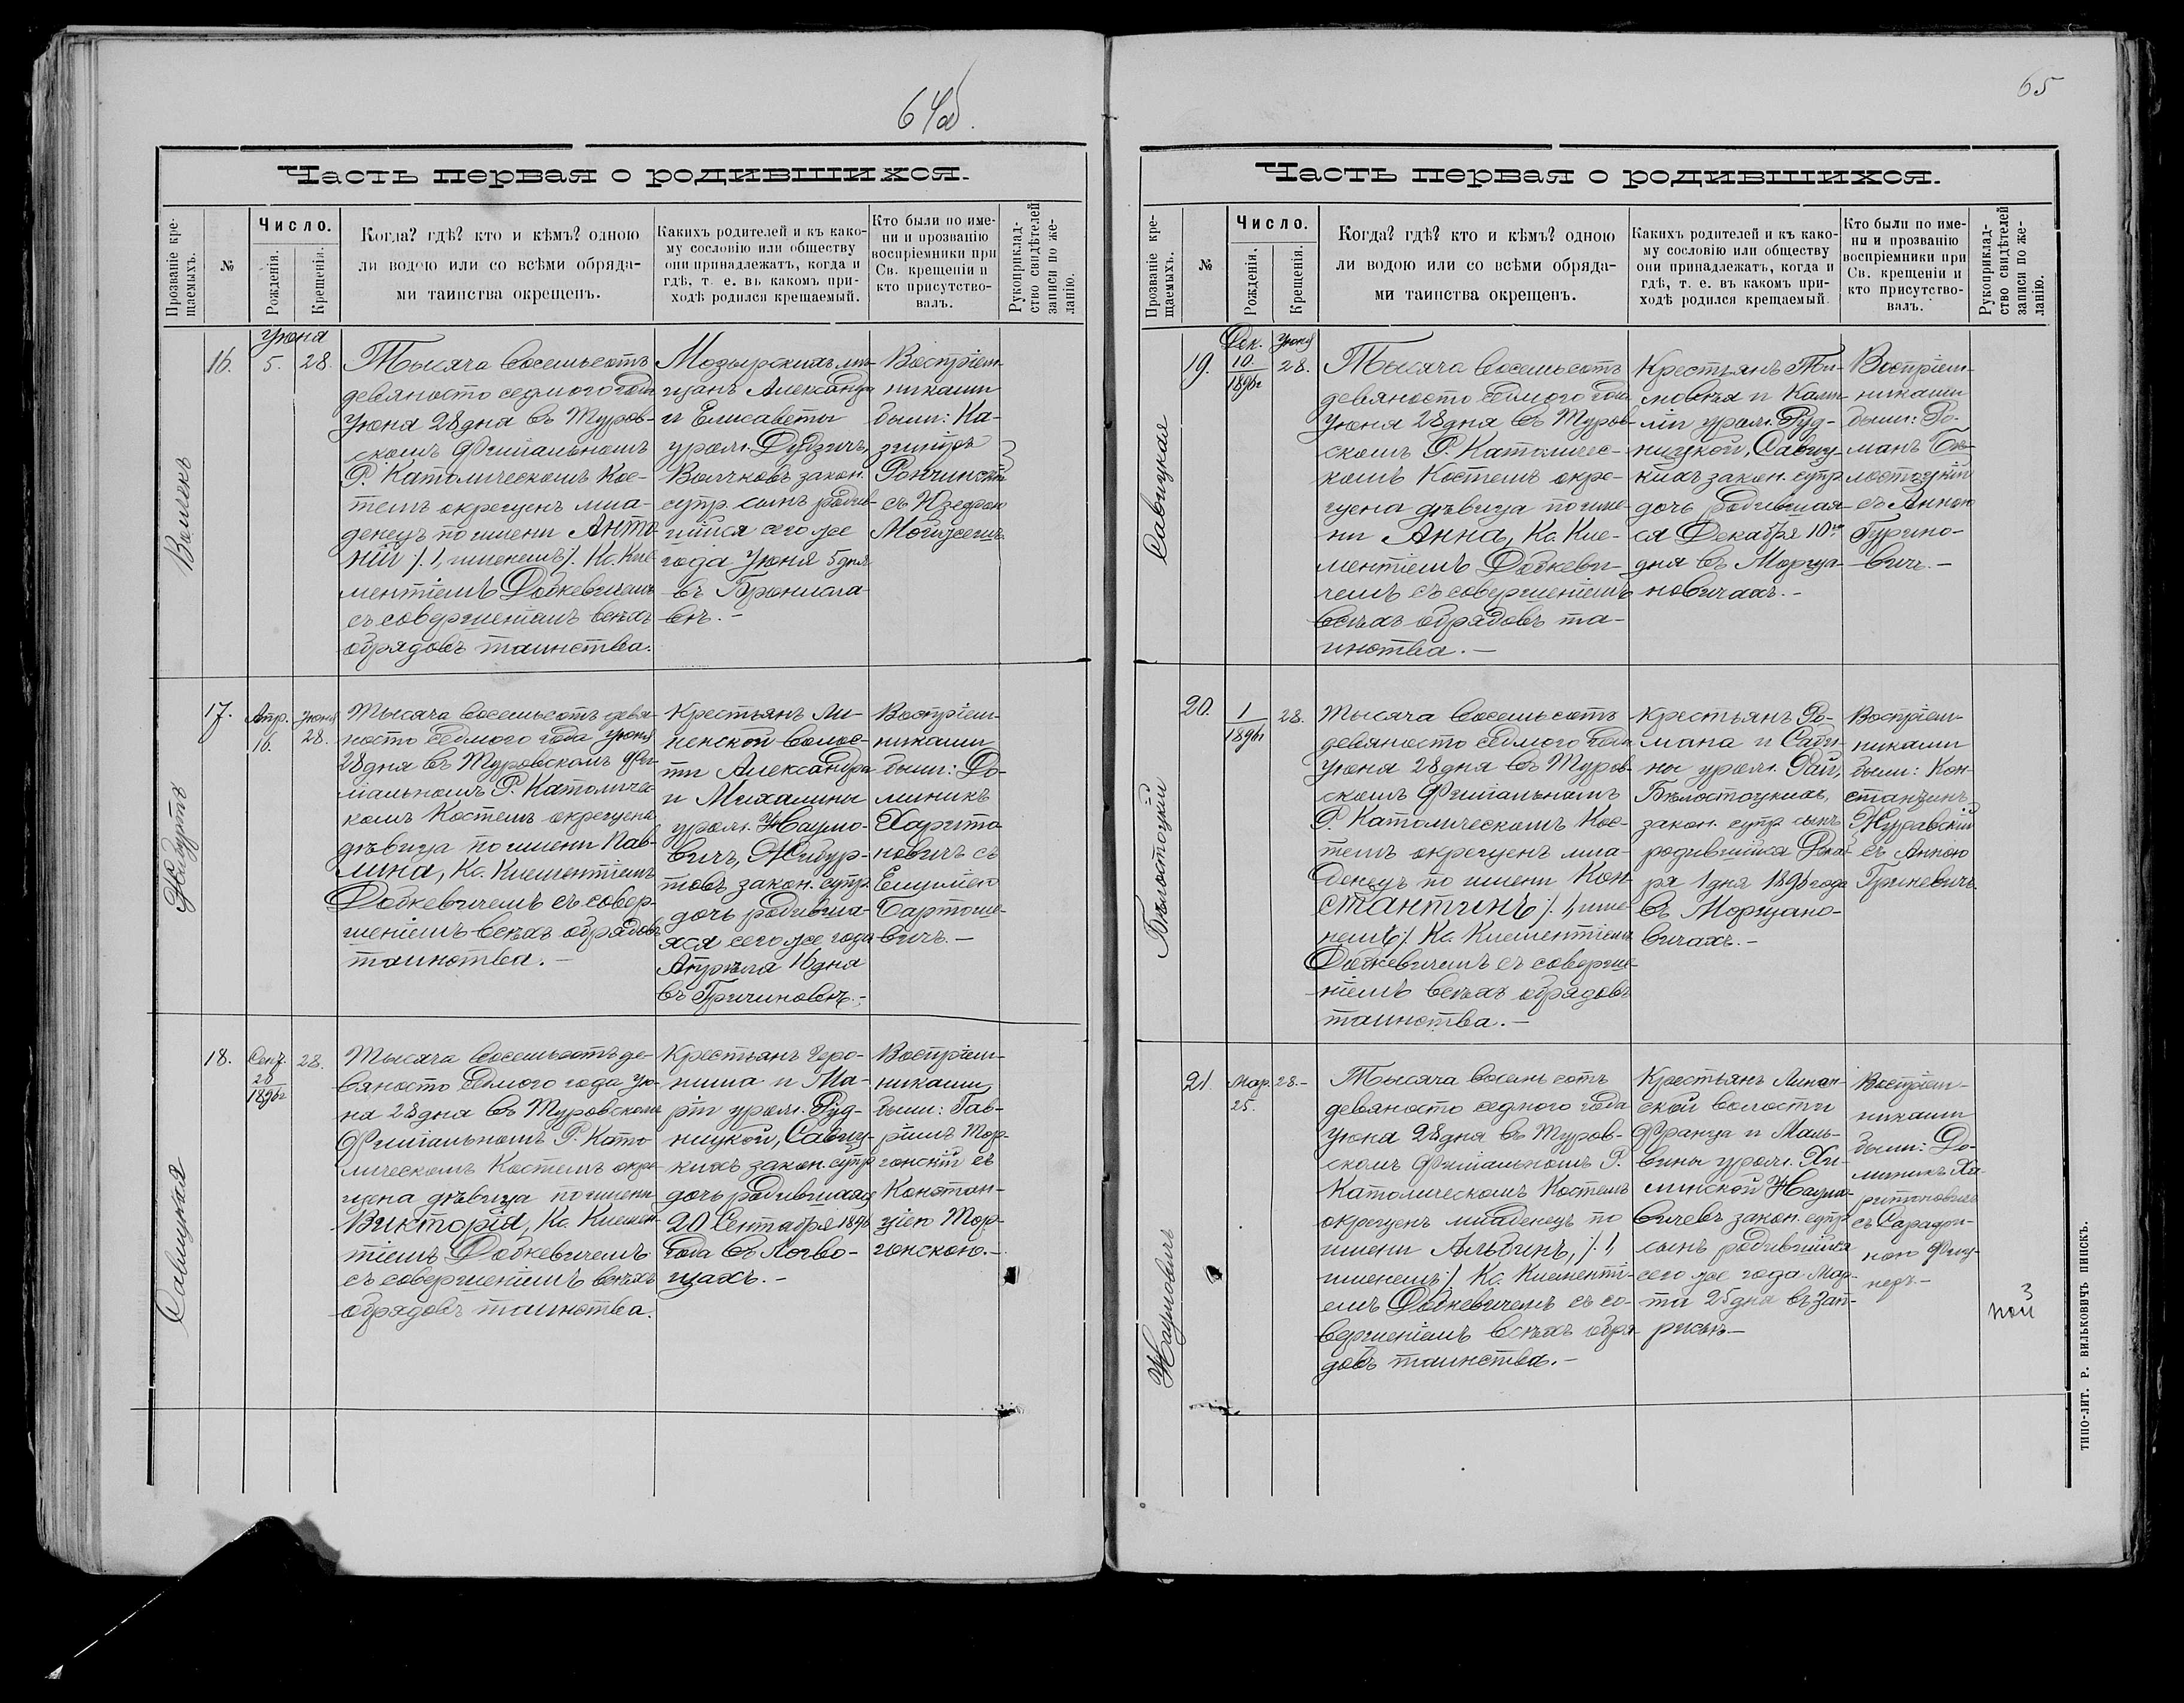 64об.
Часть первая о родившихся.
Прозваніе кре-
щаемыхъ.
№
Число.
Рожденія.
Крещенія.
Когда? гдѣ? кто и кѣмъ? одною
ли водою или со всѣми обряда-
ми таинства окрещенъ.
Какихъ родителей и къ како-
му сословію или обществу
они принадлежатъ, когда и
гдѣ, т. е. въ какомъ при-
ходѣ родился крещаемый.
Кто были по име-
ни и прозванію
воспріемники при
Св. крещеніи и
кто присутство-
валъ.
Рукоприклад-
ство свидѣтелей
записи по же-
ланію.
Волчекъ
16.
Іюня
5. 28.
Тысяча восемьсотъ
девяносто седмого года
Іюня 28 дня въ Туров-
скомъ Филіальномъ
Р. Католическомъ Кос-
телѣ окрещенъ мла-
денецъ по имени Анто-
ній /. 1, именемъ /. Кс. Кле-
ментіемъ Доткевичемъ
съ совершеніемъ всѣхъ
обрядовъ таинства.
Мозырскихъ мѣ-
щанъ Александра
и Елисаветы
урожд. Дудзичъ,
Волчковъ закон.
супр. сынъ родив-
шійся сего же
года Іюня 5 дня
въ Бронислав
вѣ.-
Воспріем-
никами
были: Ка-
зиміръ
съ Юзефою
17.
Жибуртъ
Апр.
16.
Іюня
28.
Тысяча восемьсотъ девя-
носто седмого года Іюня
28 дня въ Туровскомъ Фи-
ліальномъ Р. Католичес-
комъ Костелѣ окрещена
дѣвица по имени Пав-
лина, Кс. Клементіемъ
Доткевичемъ съ совер-
шеніемъ всѣхъ обрядовъ
таинства.-
Крестьянъ Ли-
ненской волос-
ти Александра
и Михалины
урожд. Наумо-
вичъ, Жибур-
товъ закон. супр.
дочь родивша-
яся сего же года
Апрѣля 16 дня
въ Гричиновѣ.-
Воспріем-
никами
были: До-
миникъ
Харито-
новичъ съ
Емиліею
Бартоше-
вичъ.-
Савицкая
18.
Сент.
20
1896г
28.
Тысяча восемьсотъ де-
вяносто седмого года Ію-
ня 28 дня въ Туровскомъ
Филіальномъ Р. Като-
лическомъ Костелѣ окре-
щена дѣвица по имени
Викторія, Кс. Клемен-
тіемъ Доткевичемъ
съ совершеніемъ всѣхъ
обрядовъ таинства.
Крестьянъ Іеро-
нима и Ма-
ріи урожд. Руд-
ницкой, Савиц-
кихъ закон. супр.
дочь родившаяся
20 Сентября 1896
года въ Логво-
щахъ.-
Воспріем-
никами
были: Гав-
ріилъ Мор-
гонскій съ
Констан-
ціею Мор-
гонскою.-
65
Часть первая о родившихся.
Прозваніе кре-
щаемыхъ.
№
Число.
Рожденія.
Крещенія.
Когда? гдѣ? кто и кѣмъ? одною
ли водою или со всѣми обряда-
ми таинства окрещенъ.
Какихъ родителей и къ како-
му сословію или обществу
они принадлежатъ, когда и
гдѣ, т. е. въ какомъ при-
ходѣ родился крещаемый.
Кто были по име-
ни и прозванію
воспріемники при
Св. крещеніи и
кто присутство-
валъ.
Рукоприклад-
ство свидѣтелей
записи по же-
ланію.
Савицкая
19.
Дек.
10.
1896г
Іюня
28.
Тысяча восемьсотъ
девяносто седмого года
Іюня 28 дня въ Туров-
скомъ Р. Католичес-
комъ Костелѣ окре-
щена дѣвица по име-
ни Анна, Кс. Кле-
ментіемъ Доткеви-
чемъ съ совершеніемъ
всѣхъ обрядовъ та-
инства.-
Крестьянъ Ти-
моѳея и Камил-
ліи урожд. Руд-
ницкой, Савиц-
кихъ закон. супр.
дочь родившая-
ся Декабря 10го
дня въ Морща-
новичахъ.-
Воспріем-
никами
были: Ро-
манъ Бѣ-
лостоцкій
съ Анною
Гурино-
вичъ.-
Бѣлостоцкій
20.
1
1896г
28.
Тысяча восемьсотъ
девяносто седмого года
Іюня 28 дня въ Туров-
скомъ Филіальномъ
Р. Католическомъ Кос-
телѣ окрещенъ мла-
денецъ по имени Кон-
стантинъ /. 1, име-
немъ /. Кс. Клементіемъ
Доткевичемъ съ соверше-
ніемъ всѣхъ обрядовъ
таинства.-
Крестьянъ Ро-
мана и Саби-
ны урожд. Рай,
Бѣлостоцкихъ,
закон. супр. сынъ
родившійся Декаб-
ря 1 дня 1896 года
въ Морщано-
вичахъ.-
Воспріем-
никами
были: Кон-
стантинъ
Журавскій
съ Анною
Гриневичъ.
Наумовичъ
21.
Мар.
25.
28.-
Тысяча восемьсотъ
девяносто седмого года
Іюня 28 дня въ Туров-
скомъ Филіальномъ Р.
Католическомъ Костелѣ
окрещенъ младенецъ по
имени Альбинъ, /. 1,
именемъ /. Кс. Клементі-
емъ Доткевичемъ съ со-
вершеніемъ всѣхъ обря-
довъ таинства.-
Крестьянъ Линен-
ской волости
Франца и Маль-
вины урожд. Хи-
линской Наумо-
вичевъ закон. супр.
сынъ родившійся
сего же года Мар-
та 25 дня въ Зап-
рисьѣ-
Воспріем-
никами
были: До-
миникъ Ха-
ритоновичъ
съ Сарафи-
ною
ТИПО-ЛИТ. Р. ВИЛЬКОВИЧЪ ПИНСКЪ.